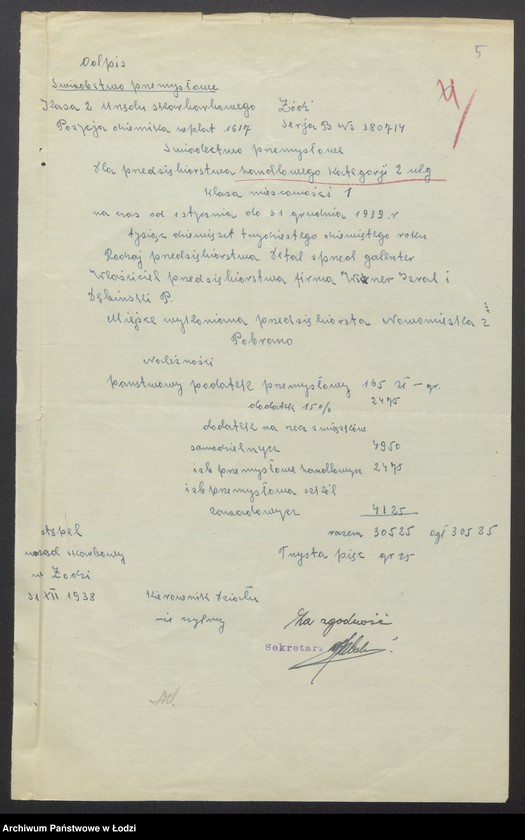 5
Odpis
Swiadectwo przemysłowe
Kasa 2 Urzędu skarbowego Łódź
Pozycja dziennika wpłat 1617 Serja B Ws 380714
Swiadectwo przemysłowe
Dla przedsiębiorstwa handlowego Kategorji 2 ulg
Klasa miescowości 1
na czas od 1 stycznia do 31 grudnia 1939 r
tysiąc dziewięset trzydziestego dziewiętego roku
Rodzaj przedsiębiorstwa Detal sprzed galenter
Właściciel przedsiębiorstwa firma Wizner Izral i
Dębinski P.
Miejsce wykonania przedsiębiorsta Nowomiestka 2
Pobrano
Należności
państwowy podatek przemysłowy 165 zł — gr.
dodatek 15% 2475
dodatek na rzecz związków
samodzielnycz 4950
izb przemysłowo handlowycz 2475
izb przemysłowa szkół
zawodowycz 4125
razem 30525 ogł 305 25
Trzysta pięc gr 25
stępel
urząd skarbowy
w Łodzi
31 XII 1938
Kierownik działu
nie czylny
Za zgodność
Sekretarz
Archiwum Państwowe w Łodzi